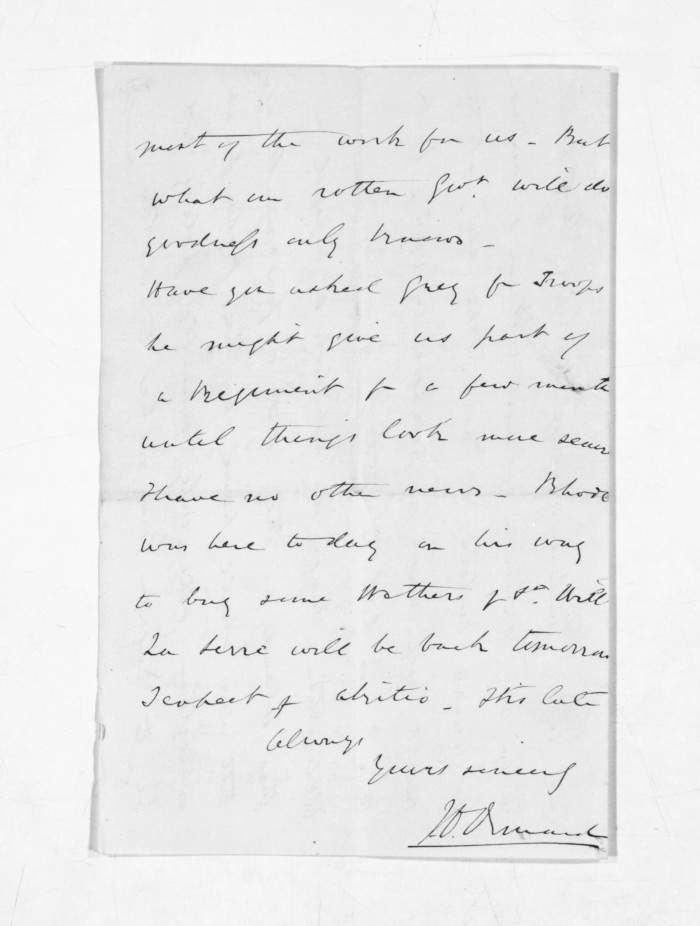 most of the work for us - But
what our rotten Govt. will do
goodness only knows -
Have you asked Grey for Troops
he might give us part of
a Regiment for a few month
until things look more secur
I have no other news - Rhode
was here today on his way
to buy some Wethers of St. Hill
La Serre will be back tomorrow
I expect f . Its late
Always
Yours sincerely
J D. Ormond